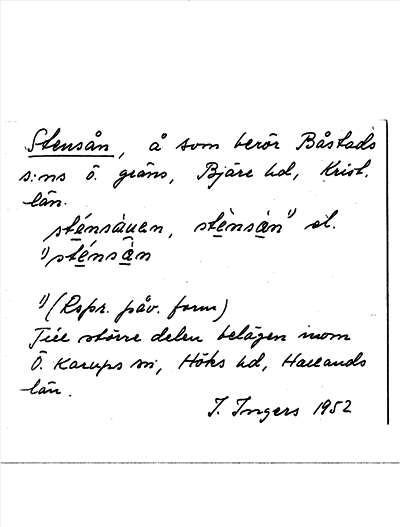 Stensån, å som berör Båstads
s:ns ö. gräns, Bjäre hd, Krist.
län.
sténsáuen, stènsàn¹⁾ el.
¹⁾sténsân
¹⁾(Rspr. påv. form)
Till större delen belägen inom
Ö. Karups sn, Höks hd, Hallands
län.
I. Ingers 1952